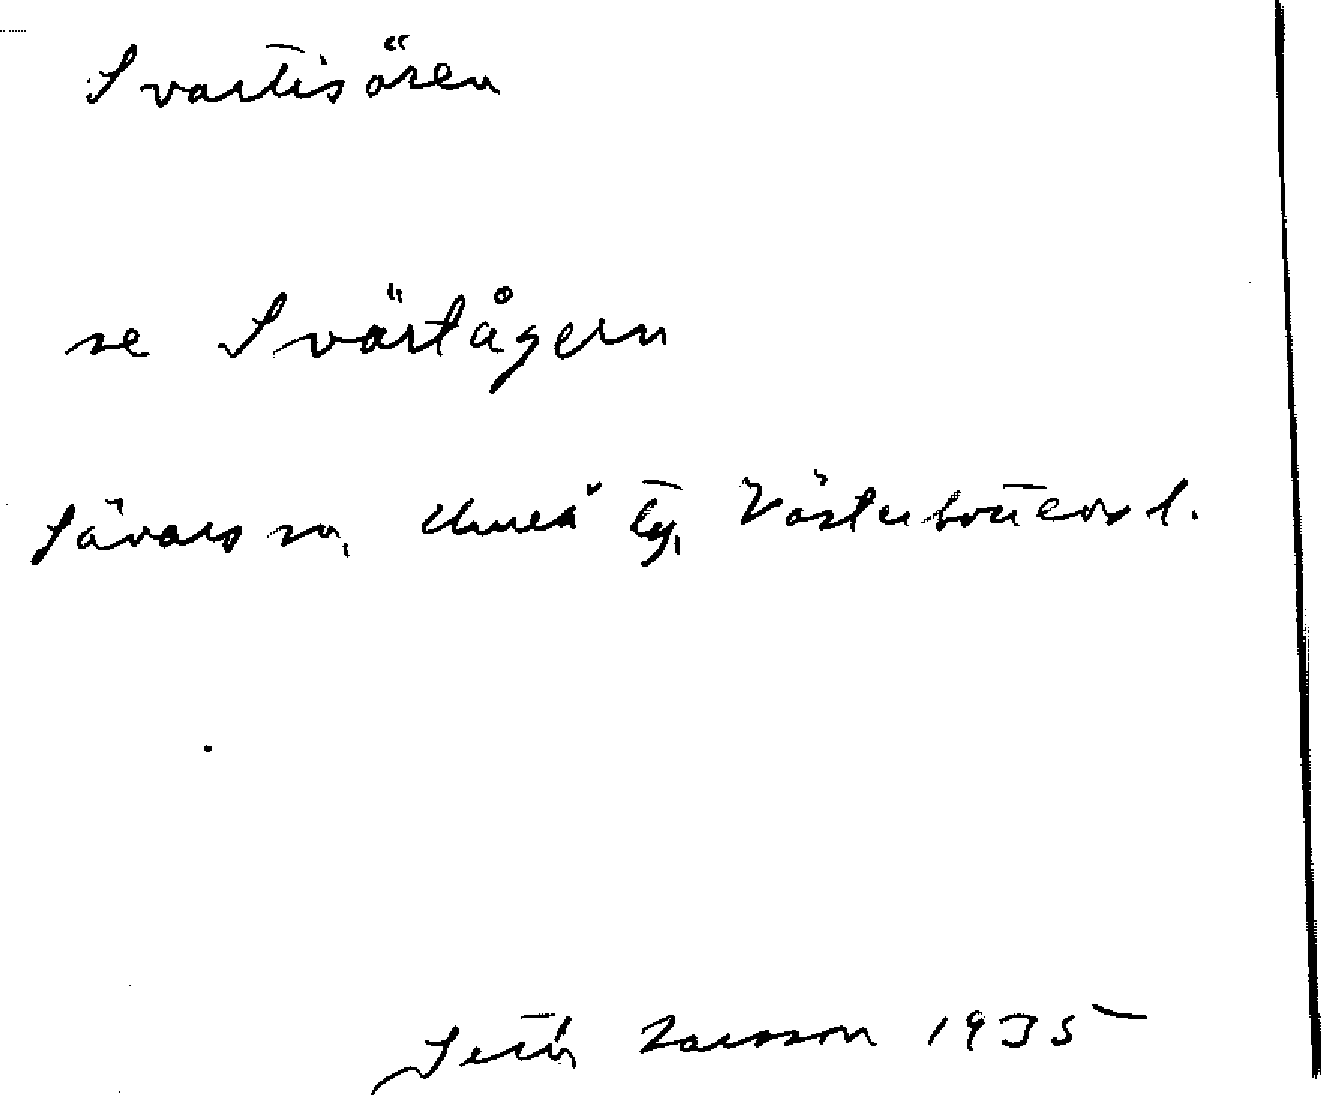 Svartisören
se Svärtågern
Sävars sn, Umeå tg, Västerbottens l.
Seth Larsson 1935